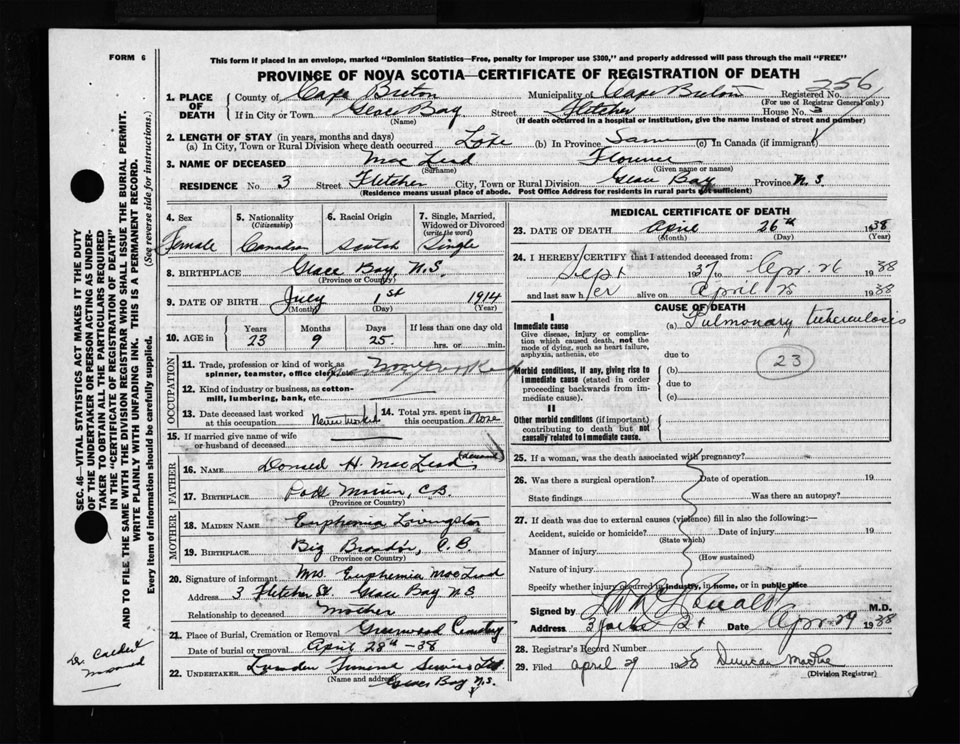 FORM 6
This form if placed in an envelope, marked "Dominion Statistics—Free, penalty for improper use $300," and properly addressed will pass through the mail "FREE"
PROVINCE OF NOVA SCOTIA—CERTIFICATE OF REGISTRATION OF DEATH
356
1. PLACE OF DEATH
County of Cape Breton Municipality of Cape Breton Registered No.
(For use of Registrar General only)
If in City or Town Glace Bay Street Fletcher House No. 3
(Name) (If death occurred in a hospital or institution, give the name instead of street and number)
2. LENGTH OF STAY (in years, months and days)
(a) In City, Town or Rural Division where death occurred Life (b) In Province Same (c) In Canada (if immigrant)
3. NAME OF DECEASED Mac Leod Florence
(Surname) (Given name or names)
RESIDENCE No. 3 Street Fletcher City, Town or Rural Division Glace Bay Province N.S.
(Residence means usual place of abode. Post Office Address for residents in rural parts not sufficient)
4. Sex 5. Nationality (Citizenship) 6. Racial Origin 7. Single, Married, Widowed or Divorced (write the word)
Female Canadian Scotch Single
8. BIRTHPLACE Glace Bay, N.S.
(Province or Country)
9. DATE OF BIRTH July 1st 1914
(Month) (Day) (Year)
10. AGE in Years Months Days If less than one day old
23 9 25 hrs. or min.
OCCUPATION
11. Trade, profession or kind of work as spinner, teamster, office clerk,
12. Kind of industry or business, as cotton-mill, lumbering, bank, etc.
13. Date deceased last worked at this occupation Never worked 14. Total yrs. spent in this occupation None
15. If married give name of wife or husband of deceased
FATHER
16. NAME Donald H. Mac Leod (deceased)
17. BIRTHPLACE Port Morien, C.B.
(Province or Country)
MOTHER
18. MAIDEN NAME Euphemia Livingston
19. BIRTHPLACE Big Brador, C.B.
(Province or Country)
20. Signature of informant Mrs. Euphemia MacLeod
Address 3 Fletcher St. Glace Bay N.S.
Relationship to deceased Mother
21. Place of Burial, Cremation or Removal Greenwood Cemetery
Date of burial or removal April 28th - 38
22. UNDERTAKER Funeral Service Ltd
(Name and address) Glace Bay, N.S.
MEDICAL CERTIFICATE OF DEATH
23. DATE OF DEATH April 26th 1938
(Month) (Day) (Year)
24. I HEREBY CERTIFY that I attended deceased from:
Sept 1937 to Apr. 26 1938
and last saw her alive on April 25 1938
CAUSE OF DEATH
I
Immediate cause (a) Pulmonary tuberculosis
Give disease, injury or complication which caused death, not the mode of dying, such as heart failure, asphyxia, asthenia, etc
due to
23
Morbid conditions, if any, giving rise to immediate cause (stated in order proceeding backwards from immediate cause).
(b)
due to
(c)
II
Other morbid conditions (if important) contributing to death but not causally related to immediate cause.
25. If a woman, was the death associated with pregnancy?
26. Was there a surgical operation? Date of operation 19
State findings Was there an autopsy?
27. If death was due to external causes (violence) fill in also the following:—
Accident, suicide or homicide? Date of injury 19
(State which)
Manner of injury
(How sustained)
Nature of injury
Specify whether injury occurred in industry, in home, or in public place
Signed by M.D.
Address Date Apr 29 1938
28. Registrar's Record Number
29. Filed April 29 1938 Duncan MacRae
(Division Registrar)
SEC. 46—VITAL STATISTICS ACT MAKES IT THE DUTY
OF THE UNDERTAKER OR PERSON ACTING AS UNDER-
TAKER TO OBTAIN ALL THE PARTICULARS REQUIRED
IN THE "CERTIFICATE OF REGISTRATION OF DEATH"
AND TO FILE THE SAME WITH THE DIVISION REGISTRAR WHO SHALL ISSUE THE BURIAL PERMIT.
WRITE PLAINLY WITH UNFADING INK. THIS IS A PERMANENT RECORD.
Every item of information should be carefully supplied. (See reverse side for instructions.)
Dr. Calder